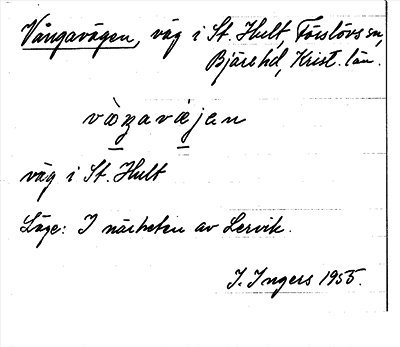 Vångavägen, väg i St. Hult, Förslövs sn,
Bjäre hd, Krist. län.
vàŋavæjan
väg i St. Hult
Läge: I närheten av Lervik.
I. Ingers 1955.